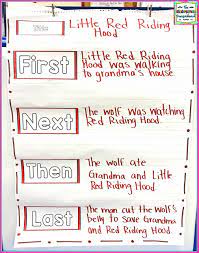 Little Red Riding
Hood
First
Little Red Riding
Hood was walking
to grandma's house
Next
The wolf was watching
Red Riding Hood.
Then
The wolf ate
Grandma and Little
Red Riding Hood
Last
The man cut the wolf's
belly to save Grandma
and Red Riding Hood